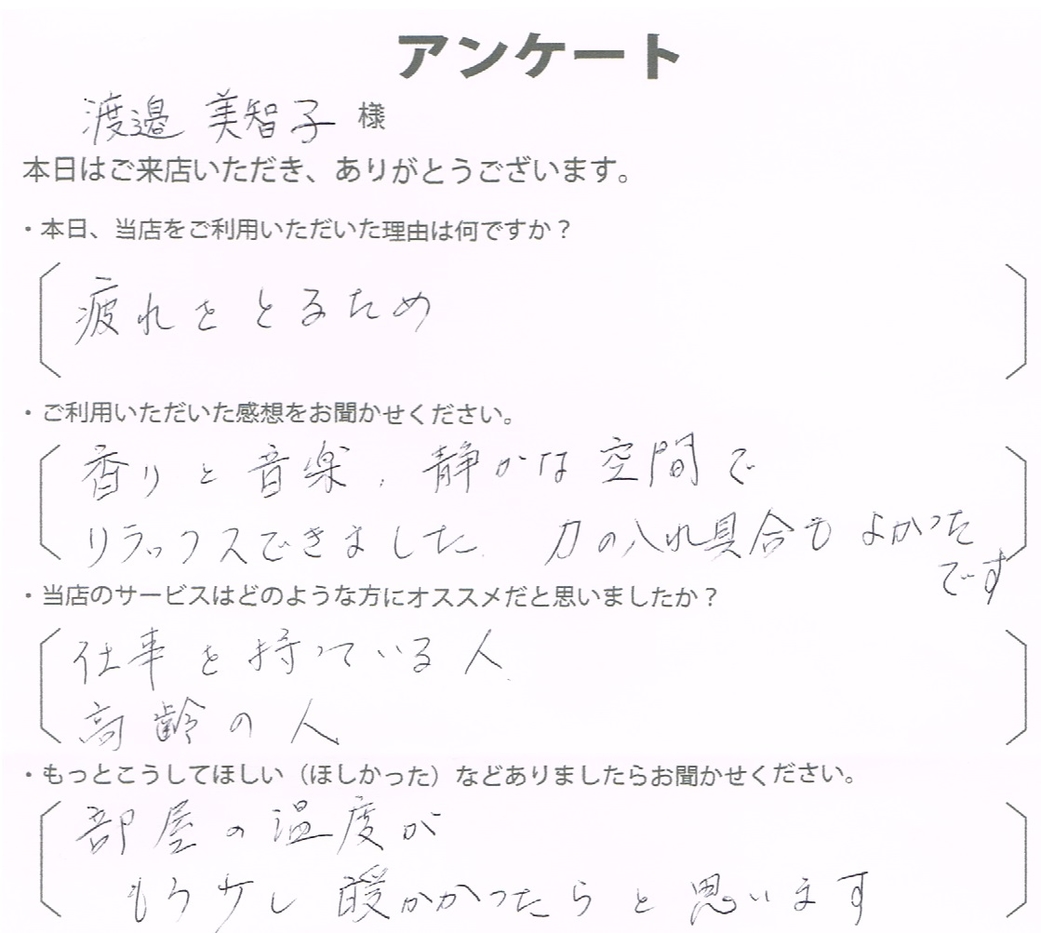 アンケート
渡邉 美智子 様
本日はご来店いただき、ありがとうございます。
・本日、当店をご利用いただいた理由は何ですか？
疲れをとるため
・ご利用いただいた感想をお聞かせください。
香りと音楽、静かな空間で
リラックスできました。力の入れ具合もよかった
です
・当店のサービスはどのような方にオススメだと思いましたか？
仕事を持っている人
高齢の人
・もっとこうしてほしい（ほしかった）などありましたらお聞かせください。
部屋の温度が
もう少し暖かかったらと思います